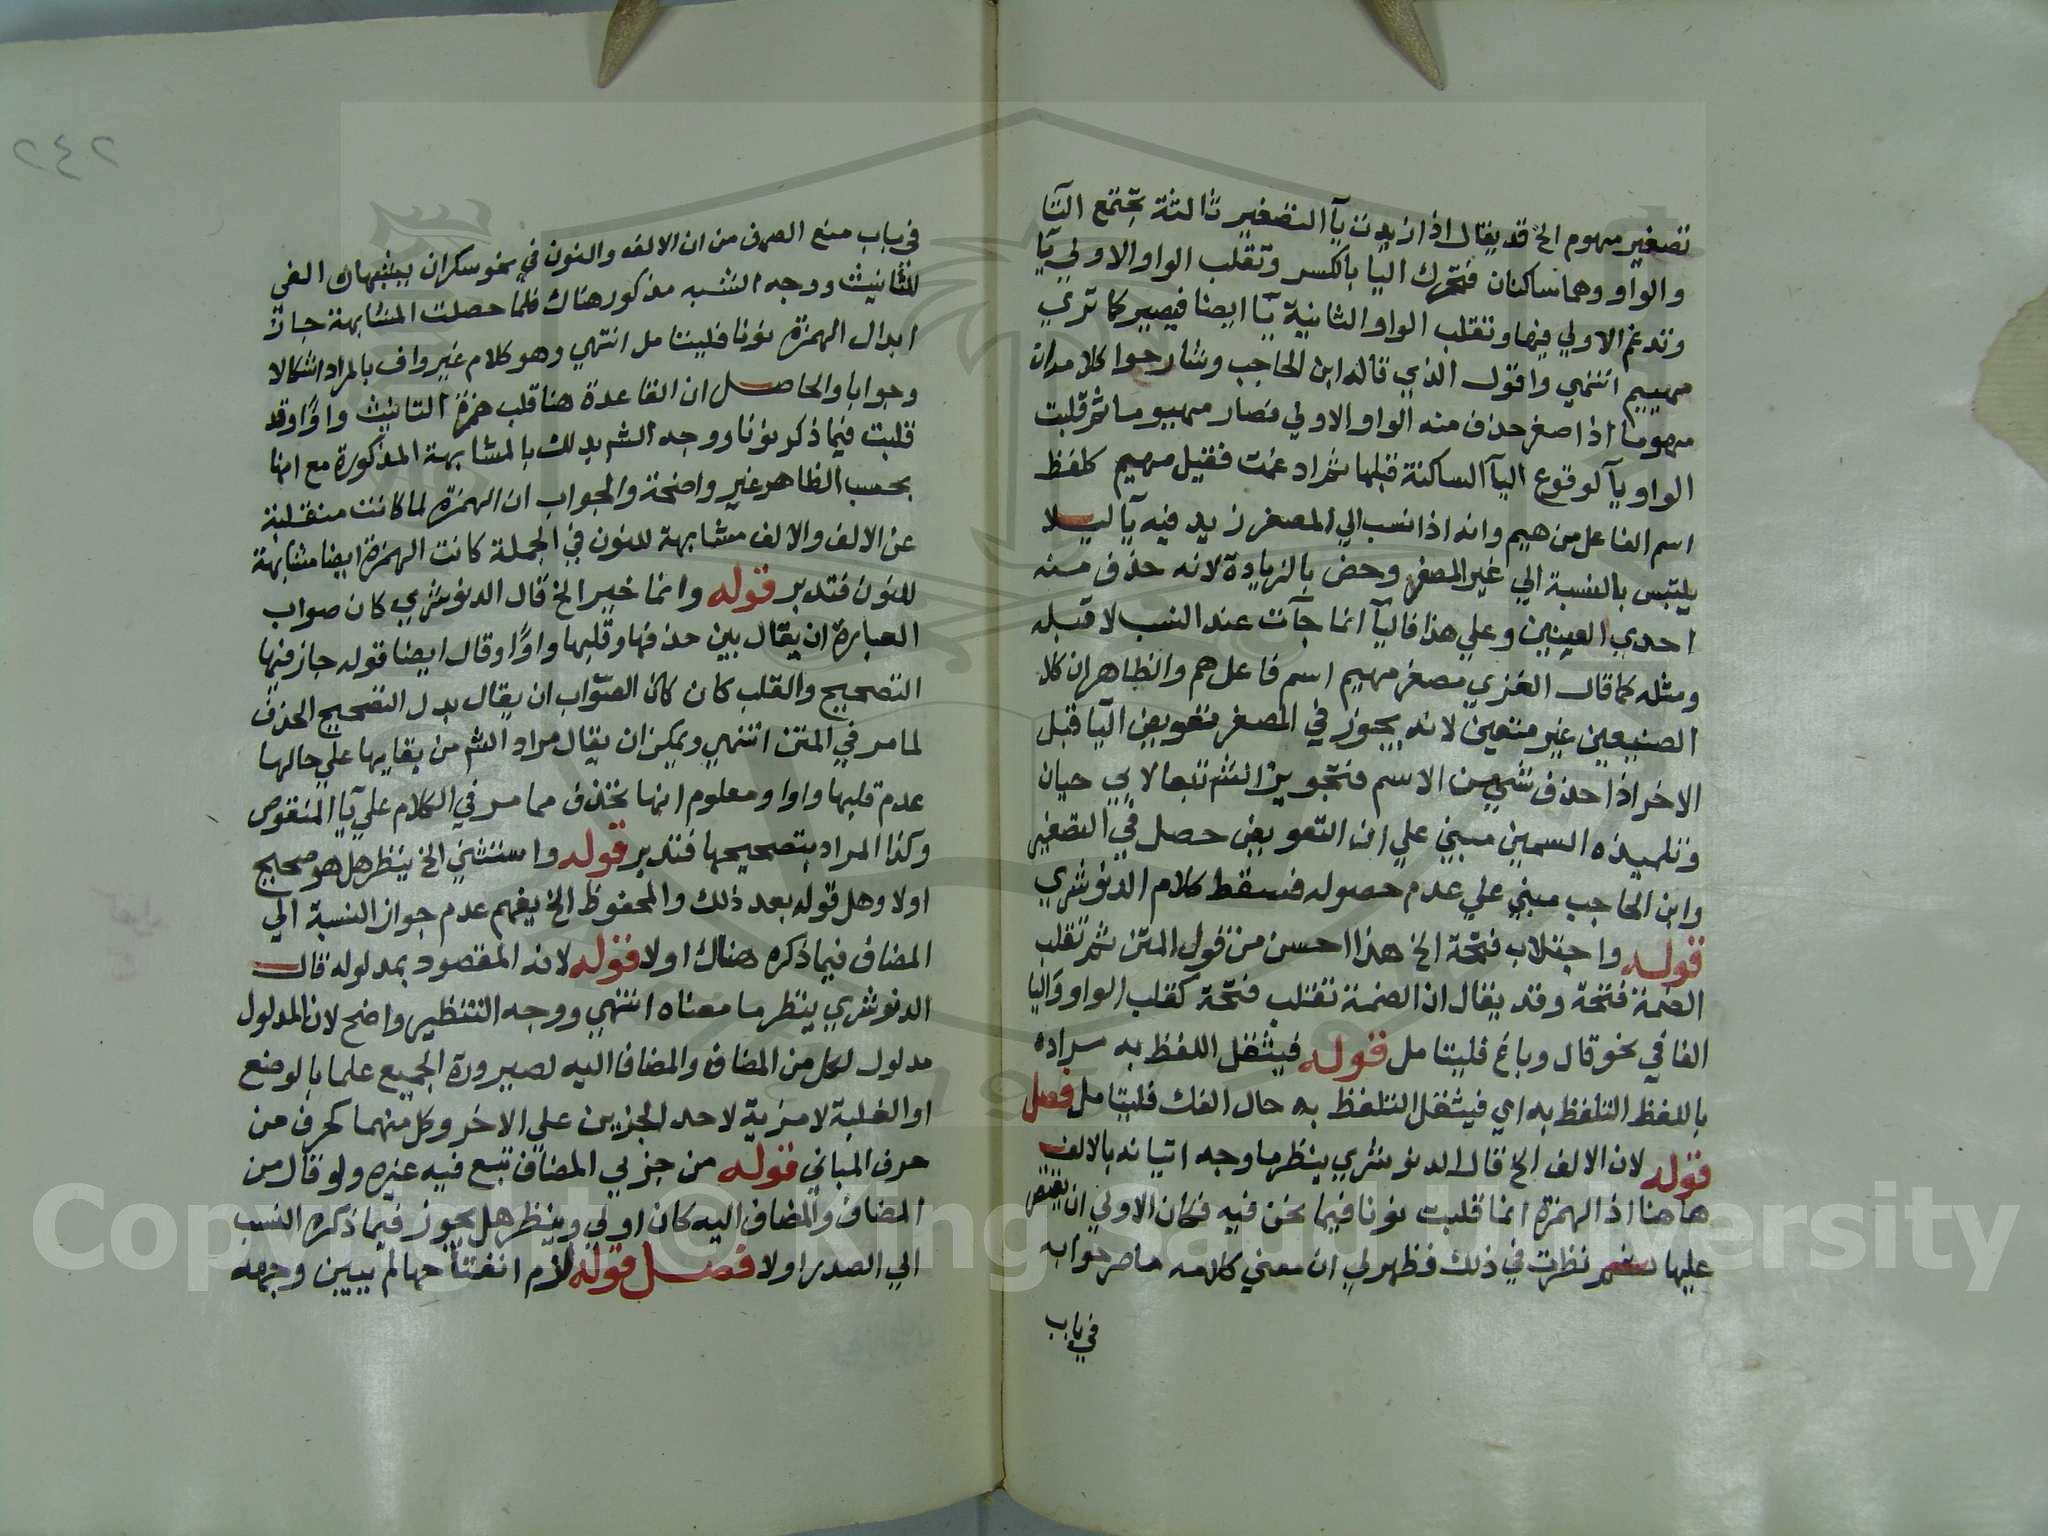 تصغير مهوم الخ قد يقال اذا زيدت يآ التصغير ثالثة تجتمع اليآ
والواو وهما ساكنان فتحرك اليا بالكسر وتقلب الواو الاولي يآ
وتدغم الاولي فيها وتقلب الواو الثانية يآ ايضا فيصير كما تري
مهييم انتهي واقول الذي قاله ابن الحاجب وشارحوا كلامه ان
مهوما اذا صغر حذف منه الواو الاولي فصار مهيوما ثم قلبت
الواو يآ لوقوع اليآ الساكنة قبلها ثم ادغمت فقيل مهيم كلفظ
اسم الفاعل من هيم وانه اذا نسب الي المصغر زيد فيه يآ ليلا
يلتبس بالنسبة الي غير المصغر وخص بالزيادة لانه حذف منه
احدي العينين وعلي هذا فاليآ انما جآت عند النسب لا قبله
ومثله كما قال الغزي مصغر مهيم اسم فاعل هم والظاهر ان كلا
الصنيعين غير متعين لانه يجوز في المصغر تعويض اليآ قبل
الاخر اذا حذف شي من الاسم فتجويز الش تبعا لابي حيان
وتلميذه السمين مبني علي ان التعويض حصل في التصغير
وابن الحاجب مبني علي عدم حصوله فسقط كلام الدنوشري
قوله واجتلاب فتحة الخ هذا احسن من قول المتن ثم تقلب
الضمة فتحة وقد يقال ان الضمة تقلب فتحة كقلب الواو واليا
الفا في نحو قال وباع فليتامل قوله فيثقل اللفظ به مراده
باللفظ التلفظ به اي فيثقل التلفظ به حال الفك فليتامل فصل
قوله لان الالف الخ قال الدنوشري ينظر ما وجه اتيانه بالالف
هاهنا اذ الهمزة انما قلبت نونا فيما نحن فيه فكان الاولي ان يقتصر
عليها ثم نظرت في ذلك فظهر لي ان معني كلامه ما صرحوا به
في باب
٢٤٢
في باب منع الصرف من ان الالف والنون في نحو سكران يشبهان الفي
للتانيث ووجه الشبه مذكور هناك فلما حصلت المشابهة جاز
ابدال الهمزة نونا فليتامل انتهي وهو كلام غير واف بالمراد اشكالا
وجوابا والحاصل ان القاعدة هنا قلب همزة التانيث واوا وقد
قلبت فيما ذكر نونا ووجه الش ذلك بالمشابهة المذكورة مع انها
بحسب الظاهر غير واضحة والجواب ان الهمزة لما كانت منقلبة
عن الالف والالف مشابهة للنون في الجملة كانت الهمزة ايضا مشابهة
للنون فتدبر قوله وانما خير الخ قال الدنوشري كان صواب
العبارة ان يقال بين حذفها وقلبها واوا وقال ايضا قوله جاز فيها
التصحيح والقلب كان كان الصواب ان يقال بدل التصحيح الحذف
لما مر في المتن انتهي ويمكن ان يقال مراد الش من بقايها علي حالها
عدم قلبها واوا ومعلوم انها تحذف مما مر في الكلام علي يآ المنقوص
وكذا المراد بتصحيحها فتدبر قوله واستثني الخ ينظر هل هو صحيح
اولا وهل قوله بعد ذلك والمحفوظ الخ يفهم عدم جواز النسبة الي
المضاف فيما ذكره هناك اولا قوله لانه المقصود بمدلوله قال
الدنوشري ينظر ما معناه انتهي ووجه التنظير واضح لان المدلول
مدلول لكل من المضاف والمضاف اليه لصيرورة الجميع علما بالوضع
او الغلبة لا مزية لاحد الجزين علي الاخر وكل منهما كحرف من
حرف المباني قوله من جزي المضاف تبع فيه غيره ولو قال من
المضاف والمضاف اليه كان اولي وينظر هل يجوز فيما ذكره النسب
الي الصدر اولا فصل قوله لازم انفتاحها لم يبين وجهه
Copyright © King Saud University